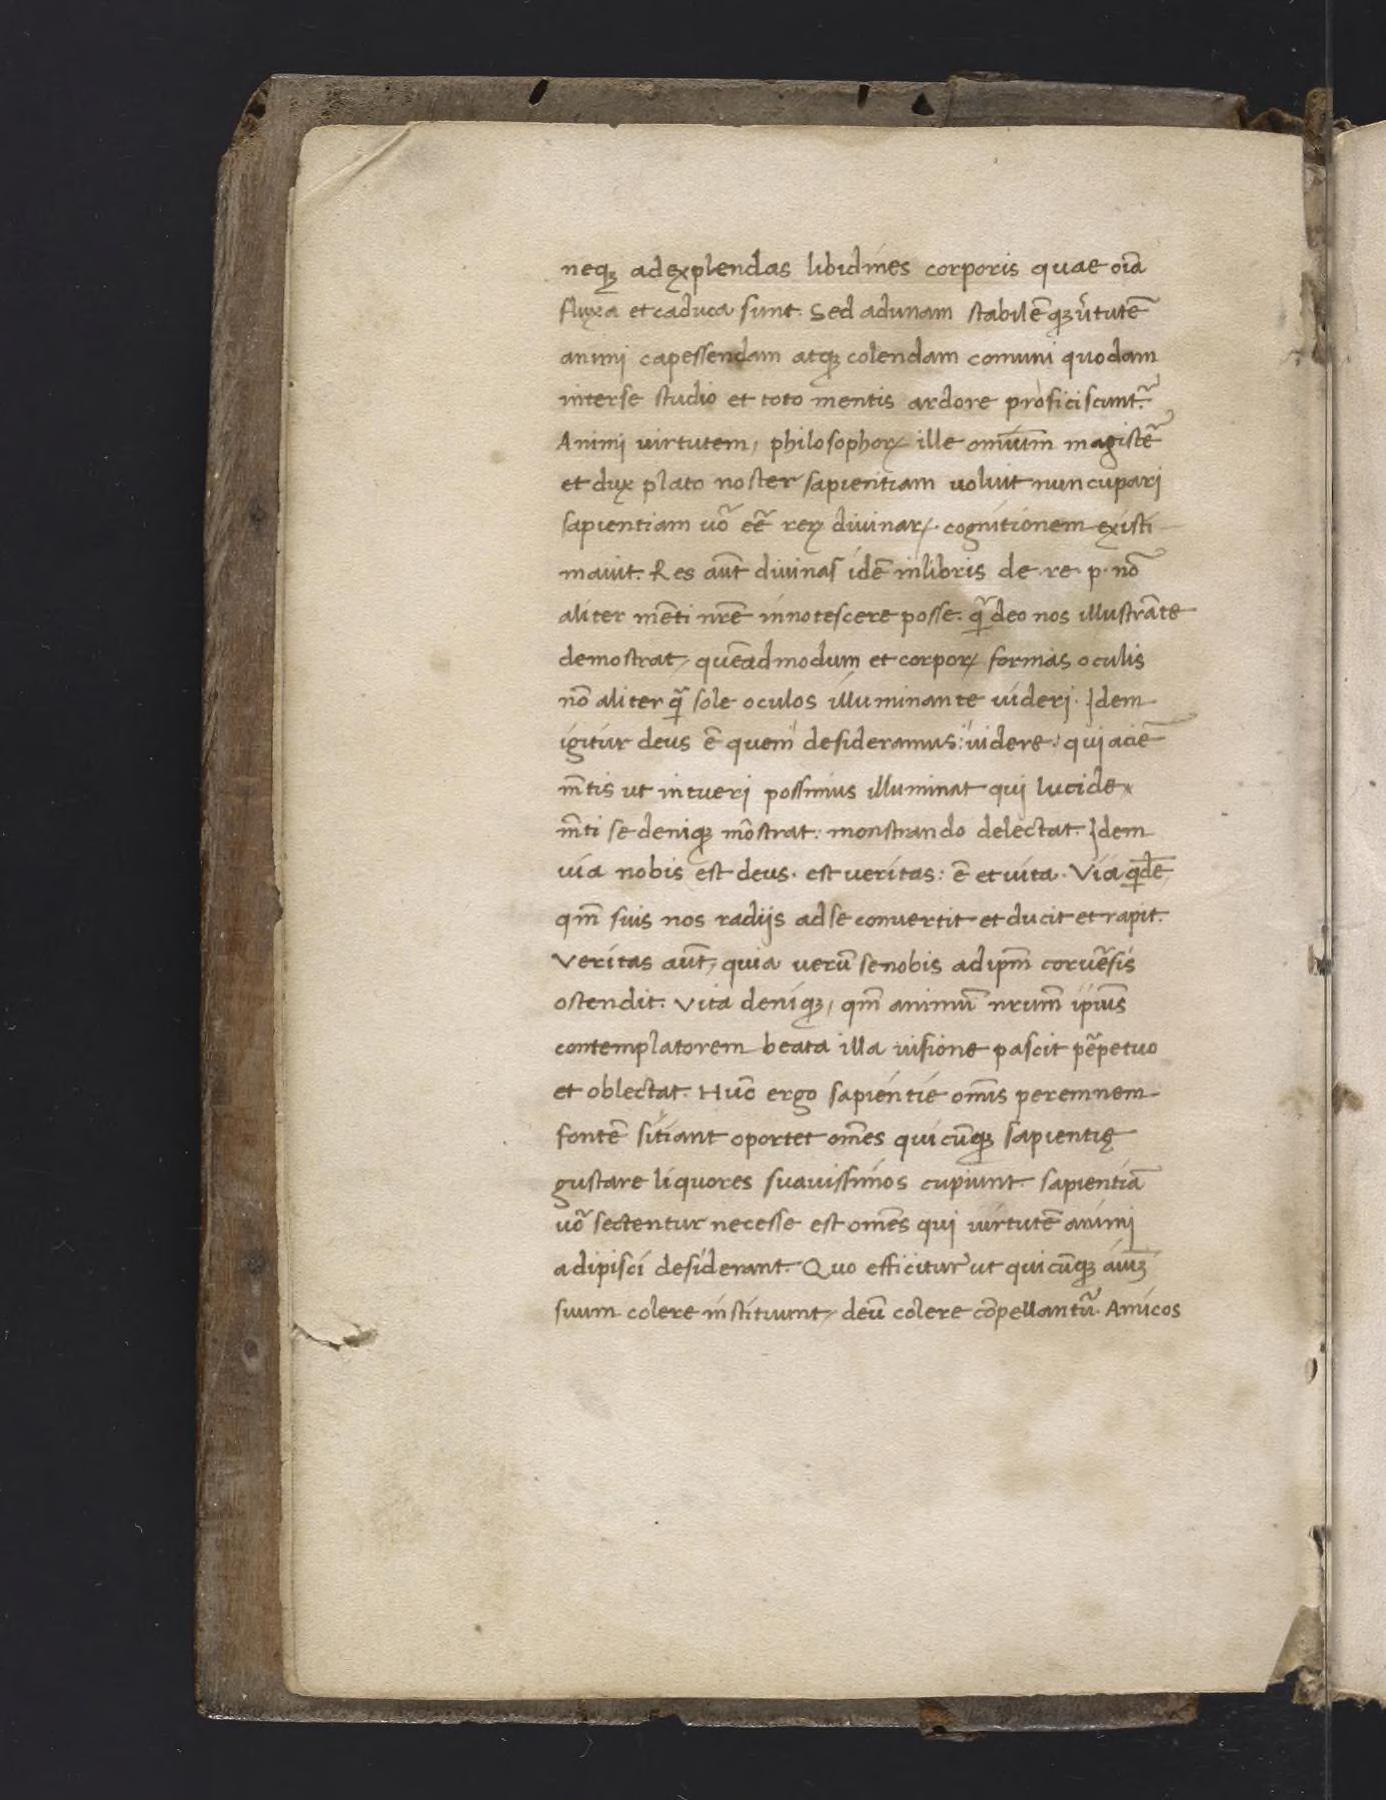 neqȝ ad explendas libidines corporis quae oīa
fluxa et caduca sunt. Sed ad unam stabilēqȝ ūtutē
animi capessendam atqȝ colendam comuni quodam
inter se studio et toto mentis ardore proficiscunt᷑.
Animi uirtutem, philosophoꝝ ille omīum magistē
et dux plato noster sapientiam uoluit nuncupari
sapientiam uō eē reꝝ diuinaꝝ. cognitionem existi
mauit. Res aūt diuinas idē in libris de. re. p. nō
aliter mēti nrē innotescere posse. q̄ deo nos illustrāte
demostrat, quēadmodum et corpoꝝ formas oculis
nō aliter q̄ sole oculos illuminante uideri. Idem
igitur deus ē quem desideramus: uidere: qui aciē
m̄tis ut intueri possimus illuminat qui lucide
m̄ti se deniqȝ mōstrat: monstrando delectat. Idem
uia nobis est deus. est ueritas: ē et uita. Via qdē
qm̄ suis nos radijs ad se conuertit et ducit et rapit.
Veritas aūt, quia uerū se nobis ad ipm̄ cōuēsis
ostendit. Vita deniqȝ, qm̄ animū nrum̄ ipīus
contemplatorem beata illa uisione pascit pēpetuo
et oblectat. Huc̄ ergo sapientie om̄is peremnem
fontē sitiant oportet om̄es quicūqȝ sapientię
gustare liquores suauissimos cupiunt. sapientiā
uō sectentur necesse est omēs qui uirtutē animi
adipisci desiderant. Quo efficitur ut quicūqȝ aīuȝ
suum colere instituunt, deū colere cōpellantū. Amicos